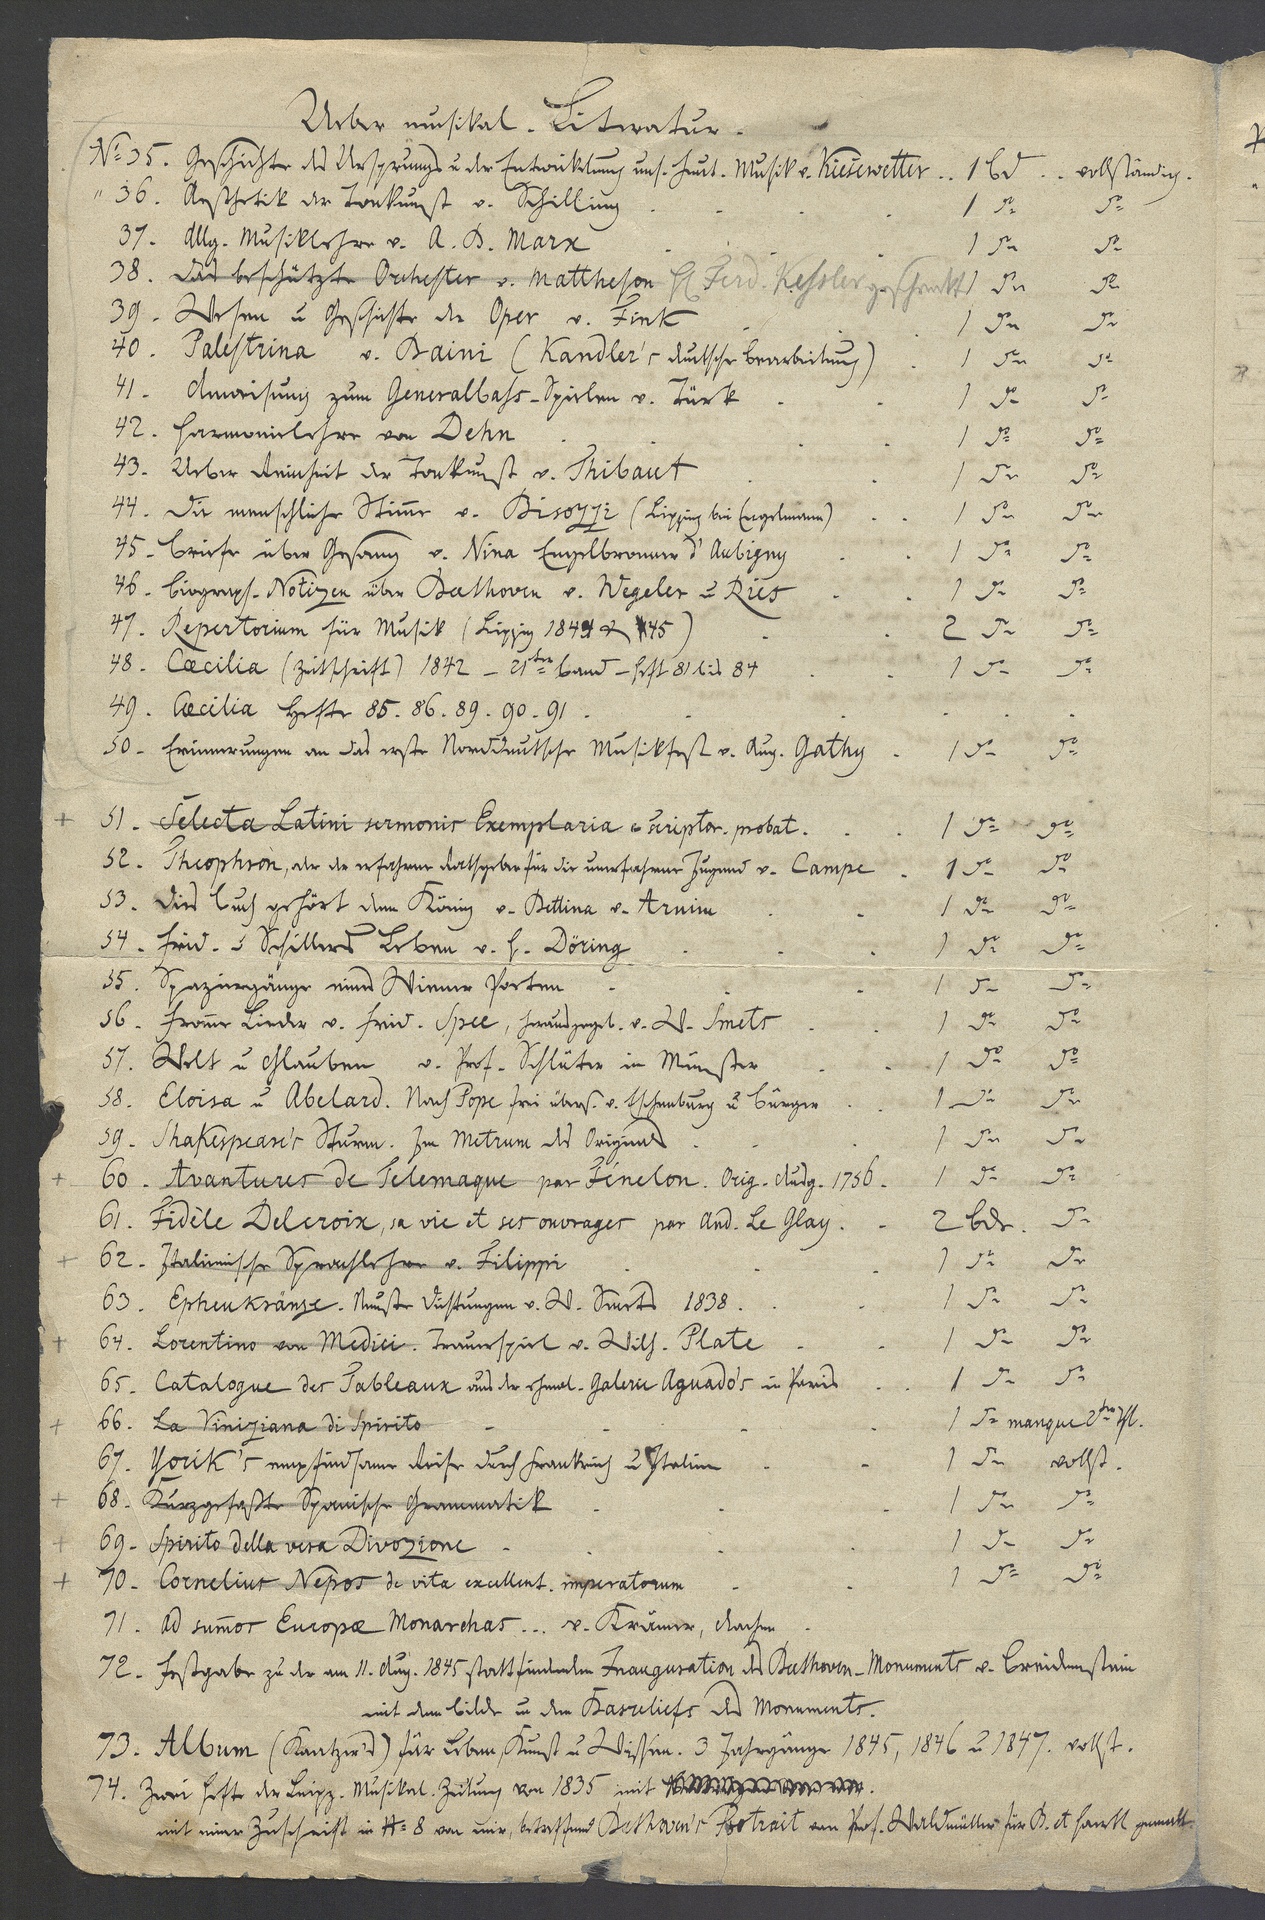 Ueber musikal. Literatur.
No 35. Geschichte des Ursprungs u der Entwickelung uns. heut. Musik v. Kiesewetter .. 1 Bd .. vollständig.
" 36. Aesthetik der Tonkunst v. Schilling . . . . 1 do do
37. Allg. Musiklehre v. A. B. Marx . . . 1 do do
38. Das beschützte Orchester v. Mattheson H Ferd. Kessler geschenkt 1 do do
39. Wesen u Geschichte der Oper v. Fink . . . 1 do do
40. Palestrina v. Baini (Kandler's deutsche Bearbeitung) . 1 do do
41. Anweisung zum Generalbass-Spielen v. Türk . . 1 do do
42. Harmonielehre von Dehn . . . . 1 do do
43. Ueber Reinheit der Tonkunst v. Thibaut . . 1 do do
44. Die menschliche Stimme v. Bisozzi (Leipzig bei Engelmann) . . 1 do do
45. Briefe über Gesang v. Nina Engelbronner d'Aubigny . . 1 do do
46. Biograph. Notizen über Beethoven v. Wegeler u Ries . . 1 do do
47. Repertorium für Musik (Leipzig 1844 & 45) . . 2 do do
48. Cæcilia (Zeitschrift) 1842 - 21ter Band - Heft 81 bis 84 . . 1 do do
49. Cæcilia Hefte 85. 86. 89. 90. 91 . . . . . .
50. Erinnerungen an das erste Norddeutsche Musikfest v. Aug. Gathy . 1 do do
+ 51. Selecta Latini sermonis Exemplaria e scriptor. probat. . . 1 do do
52. Theophron, oder der erfahrne Rathgeber für die unerfahrne Jugend v. Campe . 1 do do
53. Dies Buch gehört dem König v. Bettina v. Arnim . . 1 do do
54. Fried. v Schillers Leben v. H. Döring . . . 1 do do
55. Spaziergänge eines Wiener Poeten . . . 1 do do
56. Fromme Lieder v. Fried. Spee, herausgegeb. v. W. Smets . . 1 do do
57. Welt u Glauben v. Prof. Schlüter in Münster . . 1 do do
58. Eloisa u Abelard. Nach Pope frei übers. v. Eschenburg u Bürger . . 1 do do
59. Shakespeare's Sturm. Im Metrum des Originals . . . 1 do do
+ 60. Avantures de Telemaque par Fénelon. Orig. Ausg. 1756. 1 do do
61. Fidèle Delcroix, sa vie et ses ouvrages par And. Le Glay. . 2 Bde. do
+ 62. Italienische Sprachlehre v. Filippi . . . 1 do do
63. Epheukränze. Neuste Dichtungen v. W. Smets 1838. . . 1 do do
+ 64. Lorentino von Medici. Trauerspiel v. Wilh. Plate . . 1 do do
65. Catalogue des Tableaux aus der ehmal. Galerie Aguado's in Paris . . 1 do do
+ 66. La Viniziana di Spirito . . . . 1 do manque 2ter Thl.
67. Yorik's empfindsame Reise durch Frankreich u Italien . . 1 do vollst.
+ 68. Kurzgefaßte Spanische Grammatik . . . 1 do do
+ 69. Spirito della vera Divozione . . . . 1 do do
+ 70. Cornelius Nepos de vita excellent. imperatorum . . 1 do do
71. Ad summos Europæ Monarchas ... v. Krämer, Aachen .
72. Festgabe zu der am 11. Aug. 1845 stattfindenden Inauguration des Beethoven-Monuments v. Breidenstein
mit dem Bilde u den Basreliefs des Monuments.
73. Album (Kaatzer's) für Leben, Kunst u Wissen. 3 Jahrgänge 1845, 1846 u 1847. vollst.
74. Zwei Hefte der Leipz. Musikal. Zeitung von 1835 mit
mit einer Zuschrift in No 8 von mir, betreffend Beethoven's Portrait von Prof. Waldmüller für B. et Haertl gemalt.